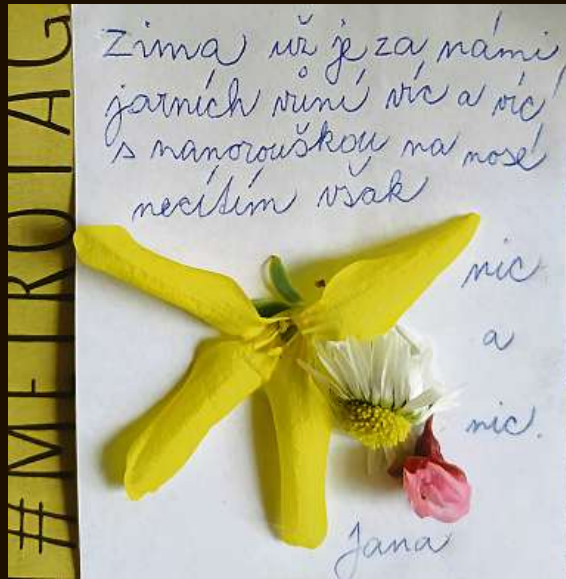 #METROTAG
Zima už je za námi,
jarních vůní víc a víc
s nanorouškou na nose
necítím však
nic
a
nic.
Jana